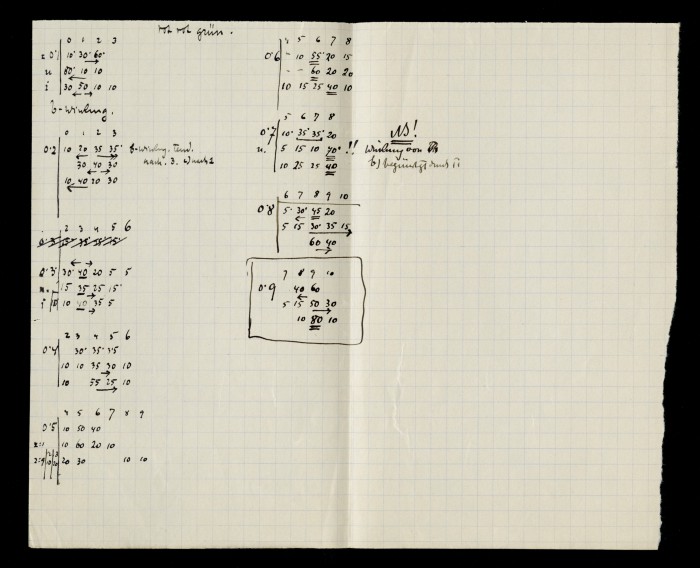 rot rot grün.
0 1 2 3
0·1 10· 30· 60·
80· 10 10
i 30 50 10 10
b-wirkung.
0 1 2 3
0·2 10 20 35 35·
30 40 30
10 40 20 30
nach 3.
2 3 4 5 6
0·3 30· 40 20 5 5
15 35 25 15·
10 40 35 5
2 3 4 5 6
0·4 30· 35· 35
10 10 35 30 10
10 55 25 10
4 5 6 7 8 9
0·5 10 50 40
10 60 20 10
20 30 10 10
4 5 6 7 8
0·6 - 10 55 20 15
- - 60 20 20
10 15 25 40 10
5 6 7 8
0·7 10· 35· 35· 20
u. 5 15 10 70· !!
10 25 25 40
NS!
Wirkung von
b) begünstigt durch
6 7 8 9 10
0·8 5· 30· 45 20
5 15 30· 35 15
60 40
7 8 9 10
0·9 40 60
5 15 50 30
10 80 10